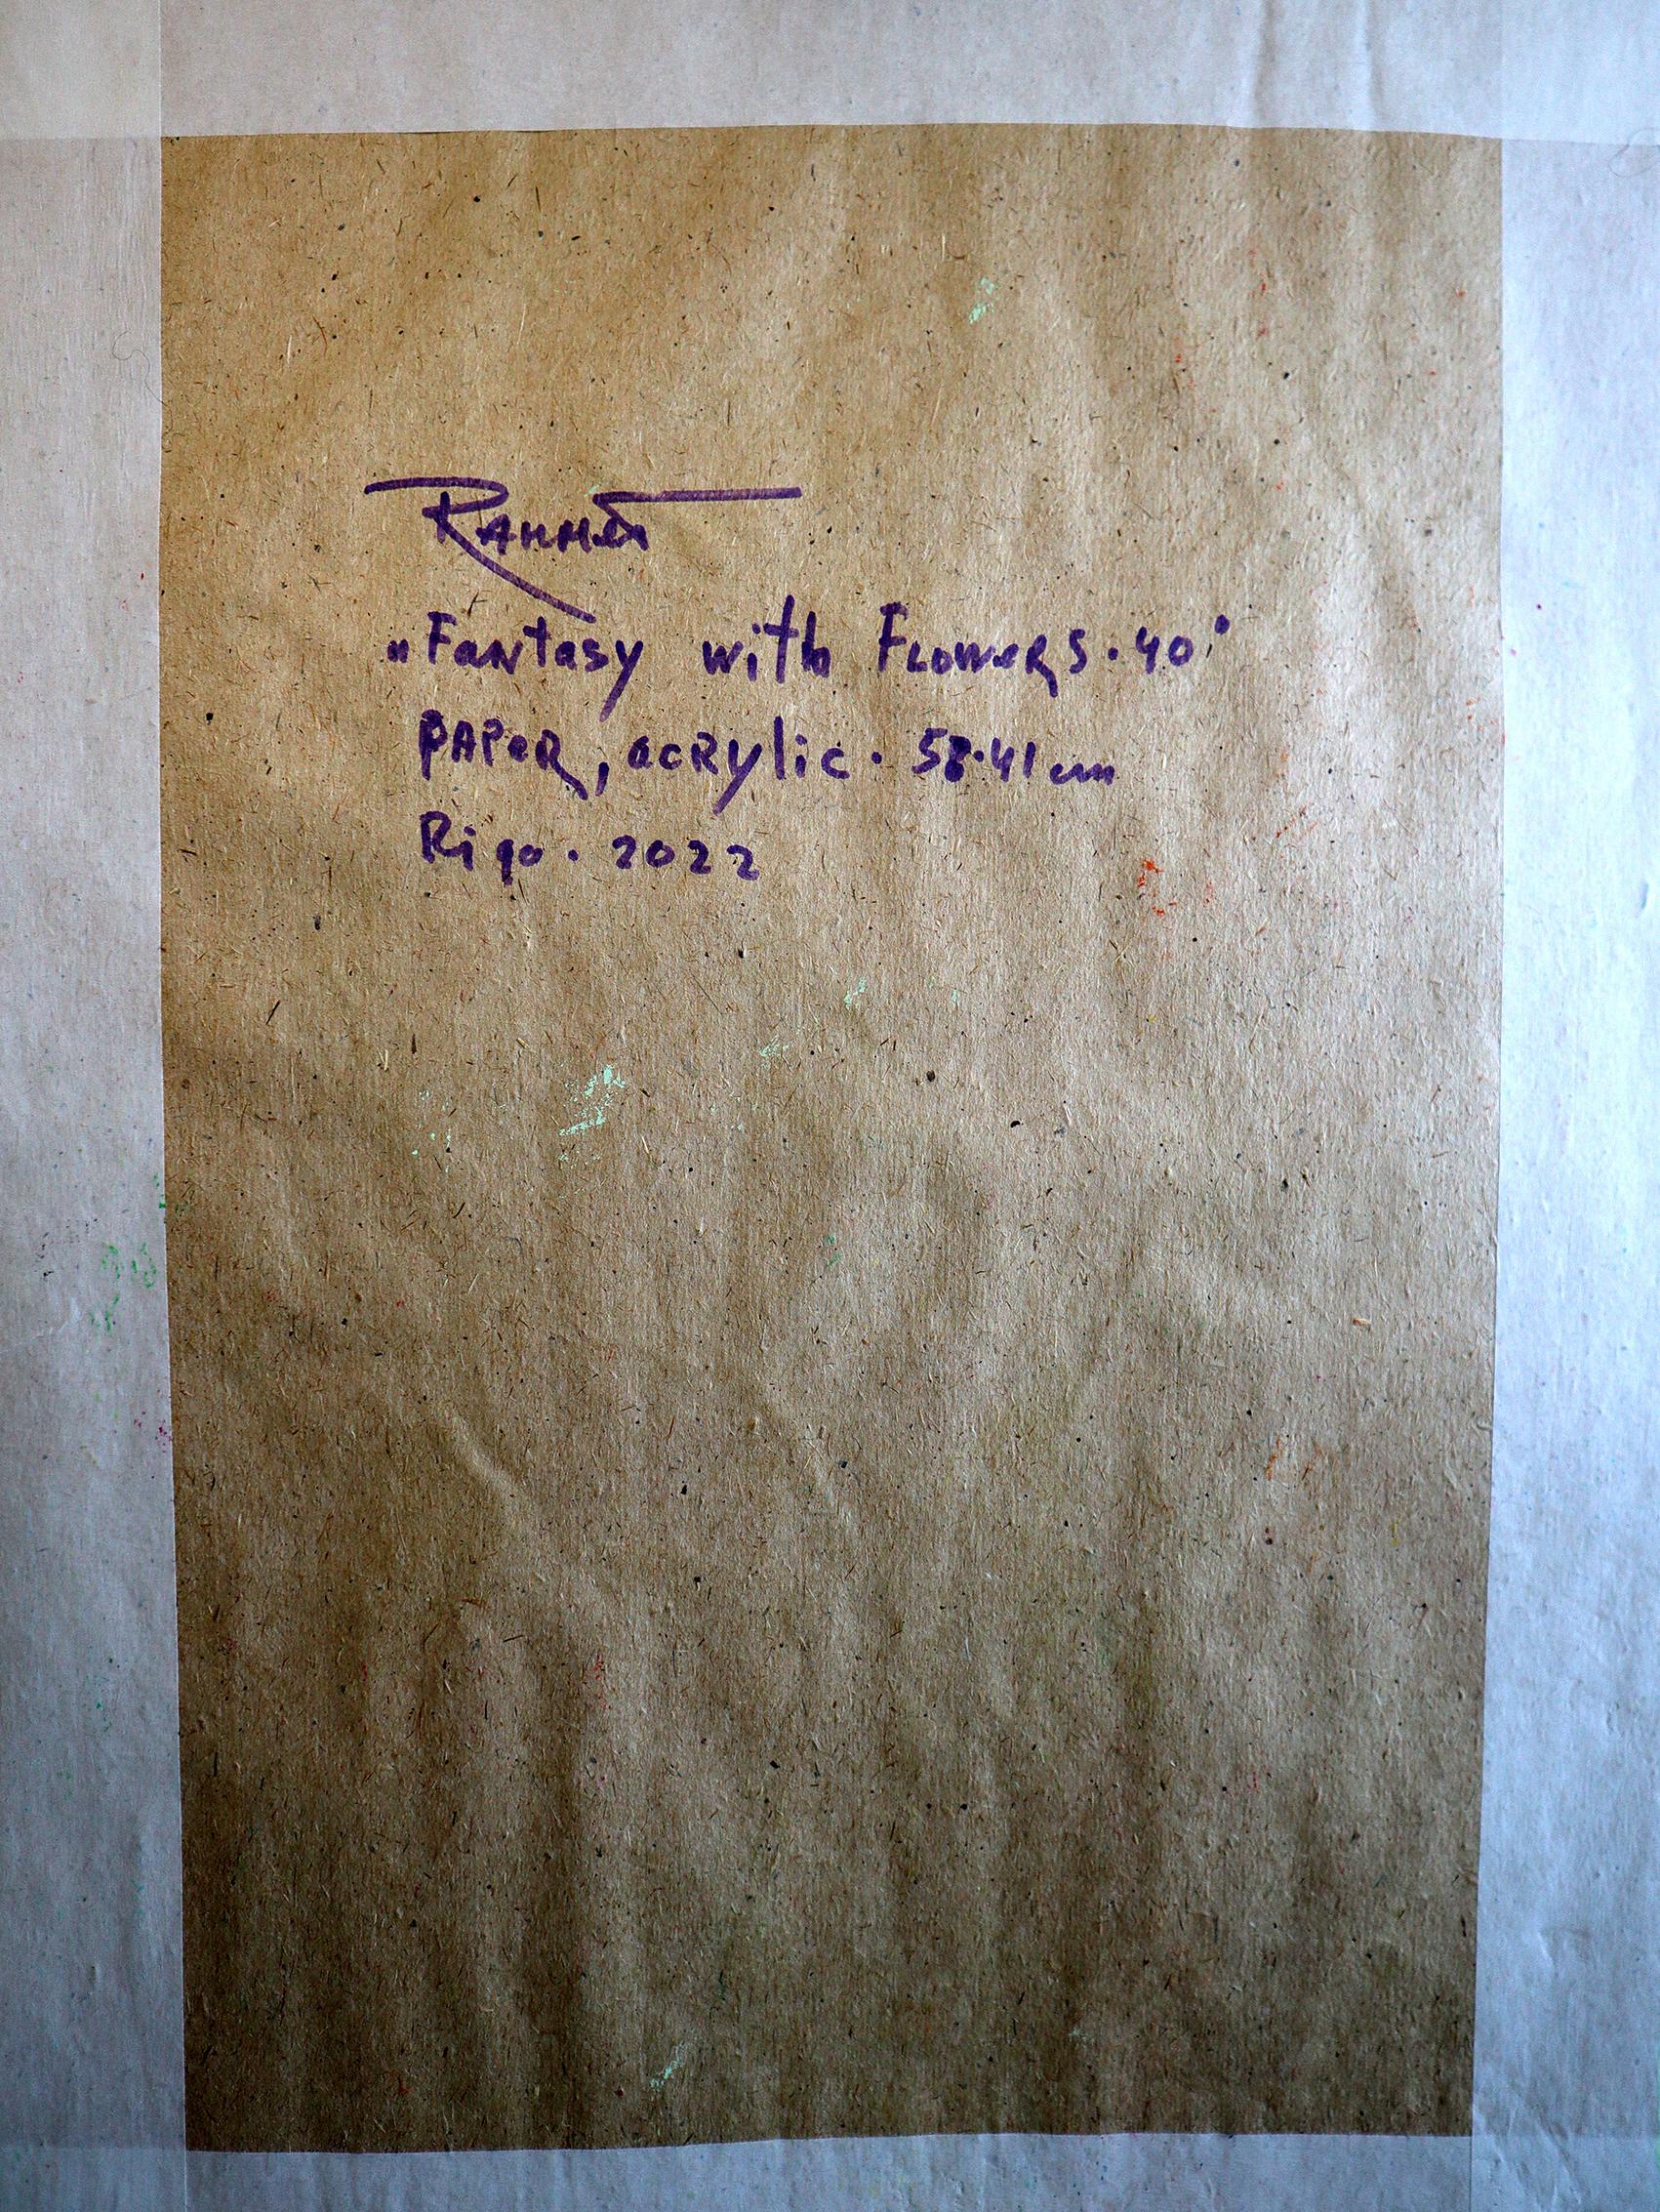 Rahmet
"Fantasy with Flowers · 40"
paper, acrylic · 58·41 cm
Riga · 2022